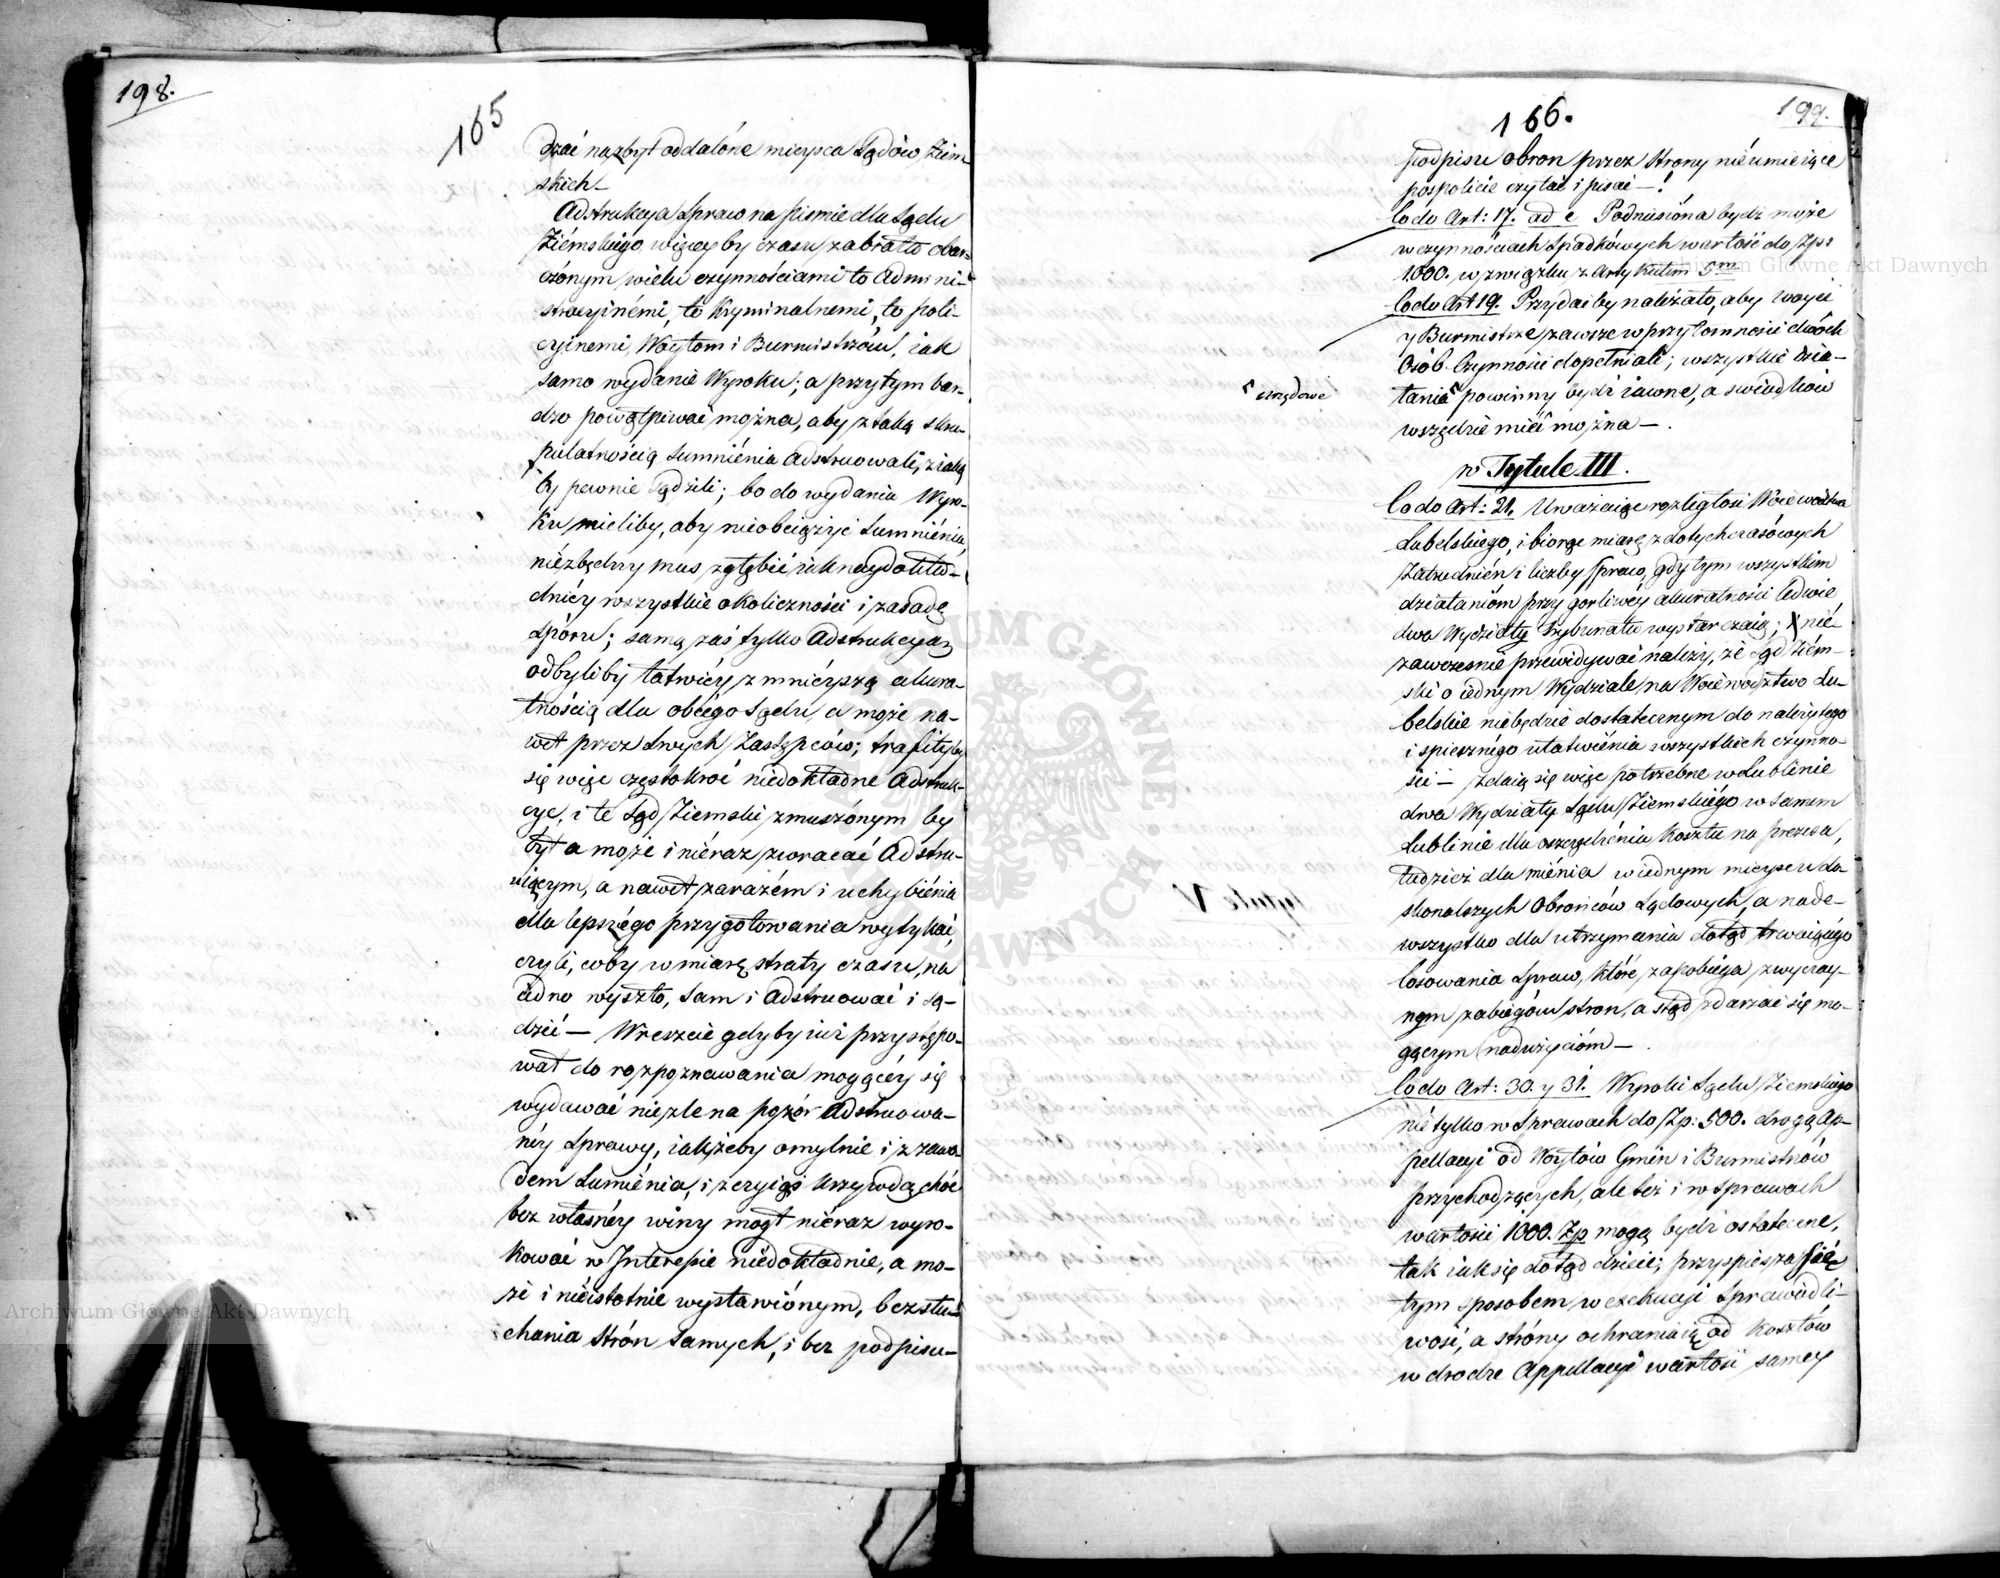 198.
165
dzać nazbyt oddalóne mieysca Sądów Ziem-
skich_
Adstrukcya Spraw na piśmie dla Sądu
Ziémskiego więcey by czasu zabrała obar-
czónym wielu czynnościami to Admini-
stracyinémi, to Kryminalnemi, to poli-
cyinemi, Woytom i Burmistrzóm, iak
samo wydanie Wyroku; a przytym bar-
dzo powątpiwać można, aby z taką skru-
pulatnością Sumniénia Adstruowali, z iaką
by pewnie Sądzili; bo do wydania Wyro-
ku mieliby, aby nieobciążyć Sumniénia,
niézbędny mus zgłębić iak naydokła-
dniéy wszystkie okoliczności i zasadę
Spóru; samą zaś tylko Adstrukcyą
odbyliby łatwiéy z mnieyszą akura-
tnością dla obcégo Sądu, a może na-
wet przez swych Zastępców; trafiłyby
się więc częstokroć niedokładne Adstruk-
cye, i te Sąd Ziemski zmuszónym by
był a może i niéraz zwracać Adstru-
uiącym, a nawet zarazém i uchybiénia
dla lepszégo przygotowania wytykać,
czyli, coby w miarę straty czasu, na
iedno wyszło, sam i Adstruować i Są-
dzić — Wreszcie gdyby iuż przystępo-
wał do rozpoznawania mogącéy się
wydawać nieźle na pozór Adstruowa-
néy Sprawy, iakżeby omylnie i z zawo
dem Sumiénia, i z czyiąś krzywdą choć
bez własnéy winy mógł niéraz wyro-
kować w Interesie niédokładnie, a mo-
że i niéistotnie wystawiónym, bez słu-
chania Strón Samych, i bez podpisu_
166.
199.
podpisu obron przez Strony niéumieiące
pospolicie czytać i pisać —!
Co do Art: 17. ad e Podniesióna bydź może
w czynnościach Spadkówych wartość do Zp:
1000. w związku z Artykułem 5m
Co do Art 19. Przydać by należało, aby Woyci
y Burmistrze zawsze w przytomności dwóch
Osób Czynności dopełniali; wszystkie dzia-
urzędowe
łania powinny bydź iawne, a świadków
wszędzie mieć można — .
w Tytule III.
Co do Art: 21. Uważaiąc rozległość Woiewództwa
Lubelskiego, i biorąc miarę z dotychczasówych
Zatrudnień i liczby Spraw, gdy tym wszystkim
działanióm przy gorliwéy akuratności ledwie
dwa Wydziały Trybunału wystarczaią; nié
zawcześnie przewidywać należy, że Sąd Ziém-
ski o iednym Wydziale na Woiewództwo Lu-
belskie niebędzie dostatecznym do należytego
i spiesznégo ułatwiénia wszystkich czynno-
ści — Zdaią się więc potrzebne w Lublinie
dwa Wydziały Sądu Ziemskiégo w samem
Lublinie dla oszczędzénia Kosztu na prezesa,
tudzież dla miénia w iednym mieyscu do-
skonalszych Obrońców Sądowych, a nade-
wszystko dla utrzymania dotąd trwaiącégo
losowania Spraw, któré zapobiega zwyczay-
nym zabiegóm stron, a stąd zdarzać się mo-
gącym nadużycióm — .
Co do Art: 30. y 31. Wyroki Sądu Ziemskiego
nié tylko w Sprawach do Zp: 500. drogą Ap-
pellacyi od Woytów Gmin i Burmistrzów
przychodzących, ale też i w Sprawach
wartości 1000. Zp mogą bydź ostateczne,
tak iak się dotąd dzieie; przyspiesza się
tym sposobem w exekucyi Sprawiedli-
wość, a stróny ochraniaią od Kosztów
w drodze Appellacyi wartość samey